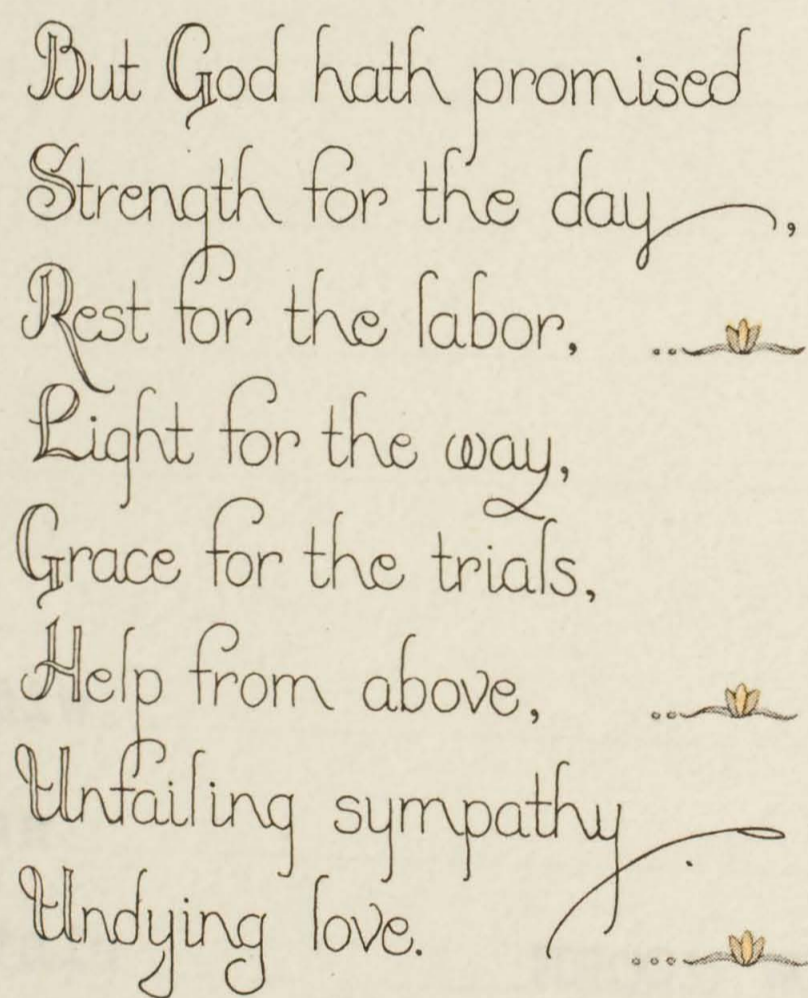 But God hath promised
Strength for the day,
Rest for the labor,
Light for the way,
Grace for the trials,
Help from above,
Unfailing sympathy
Undying love.